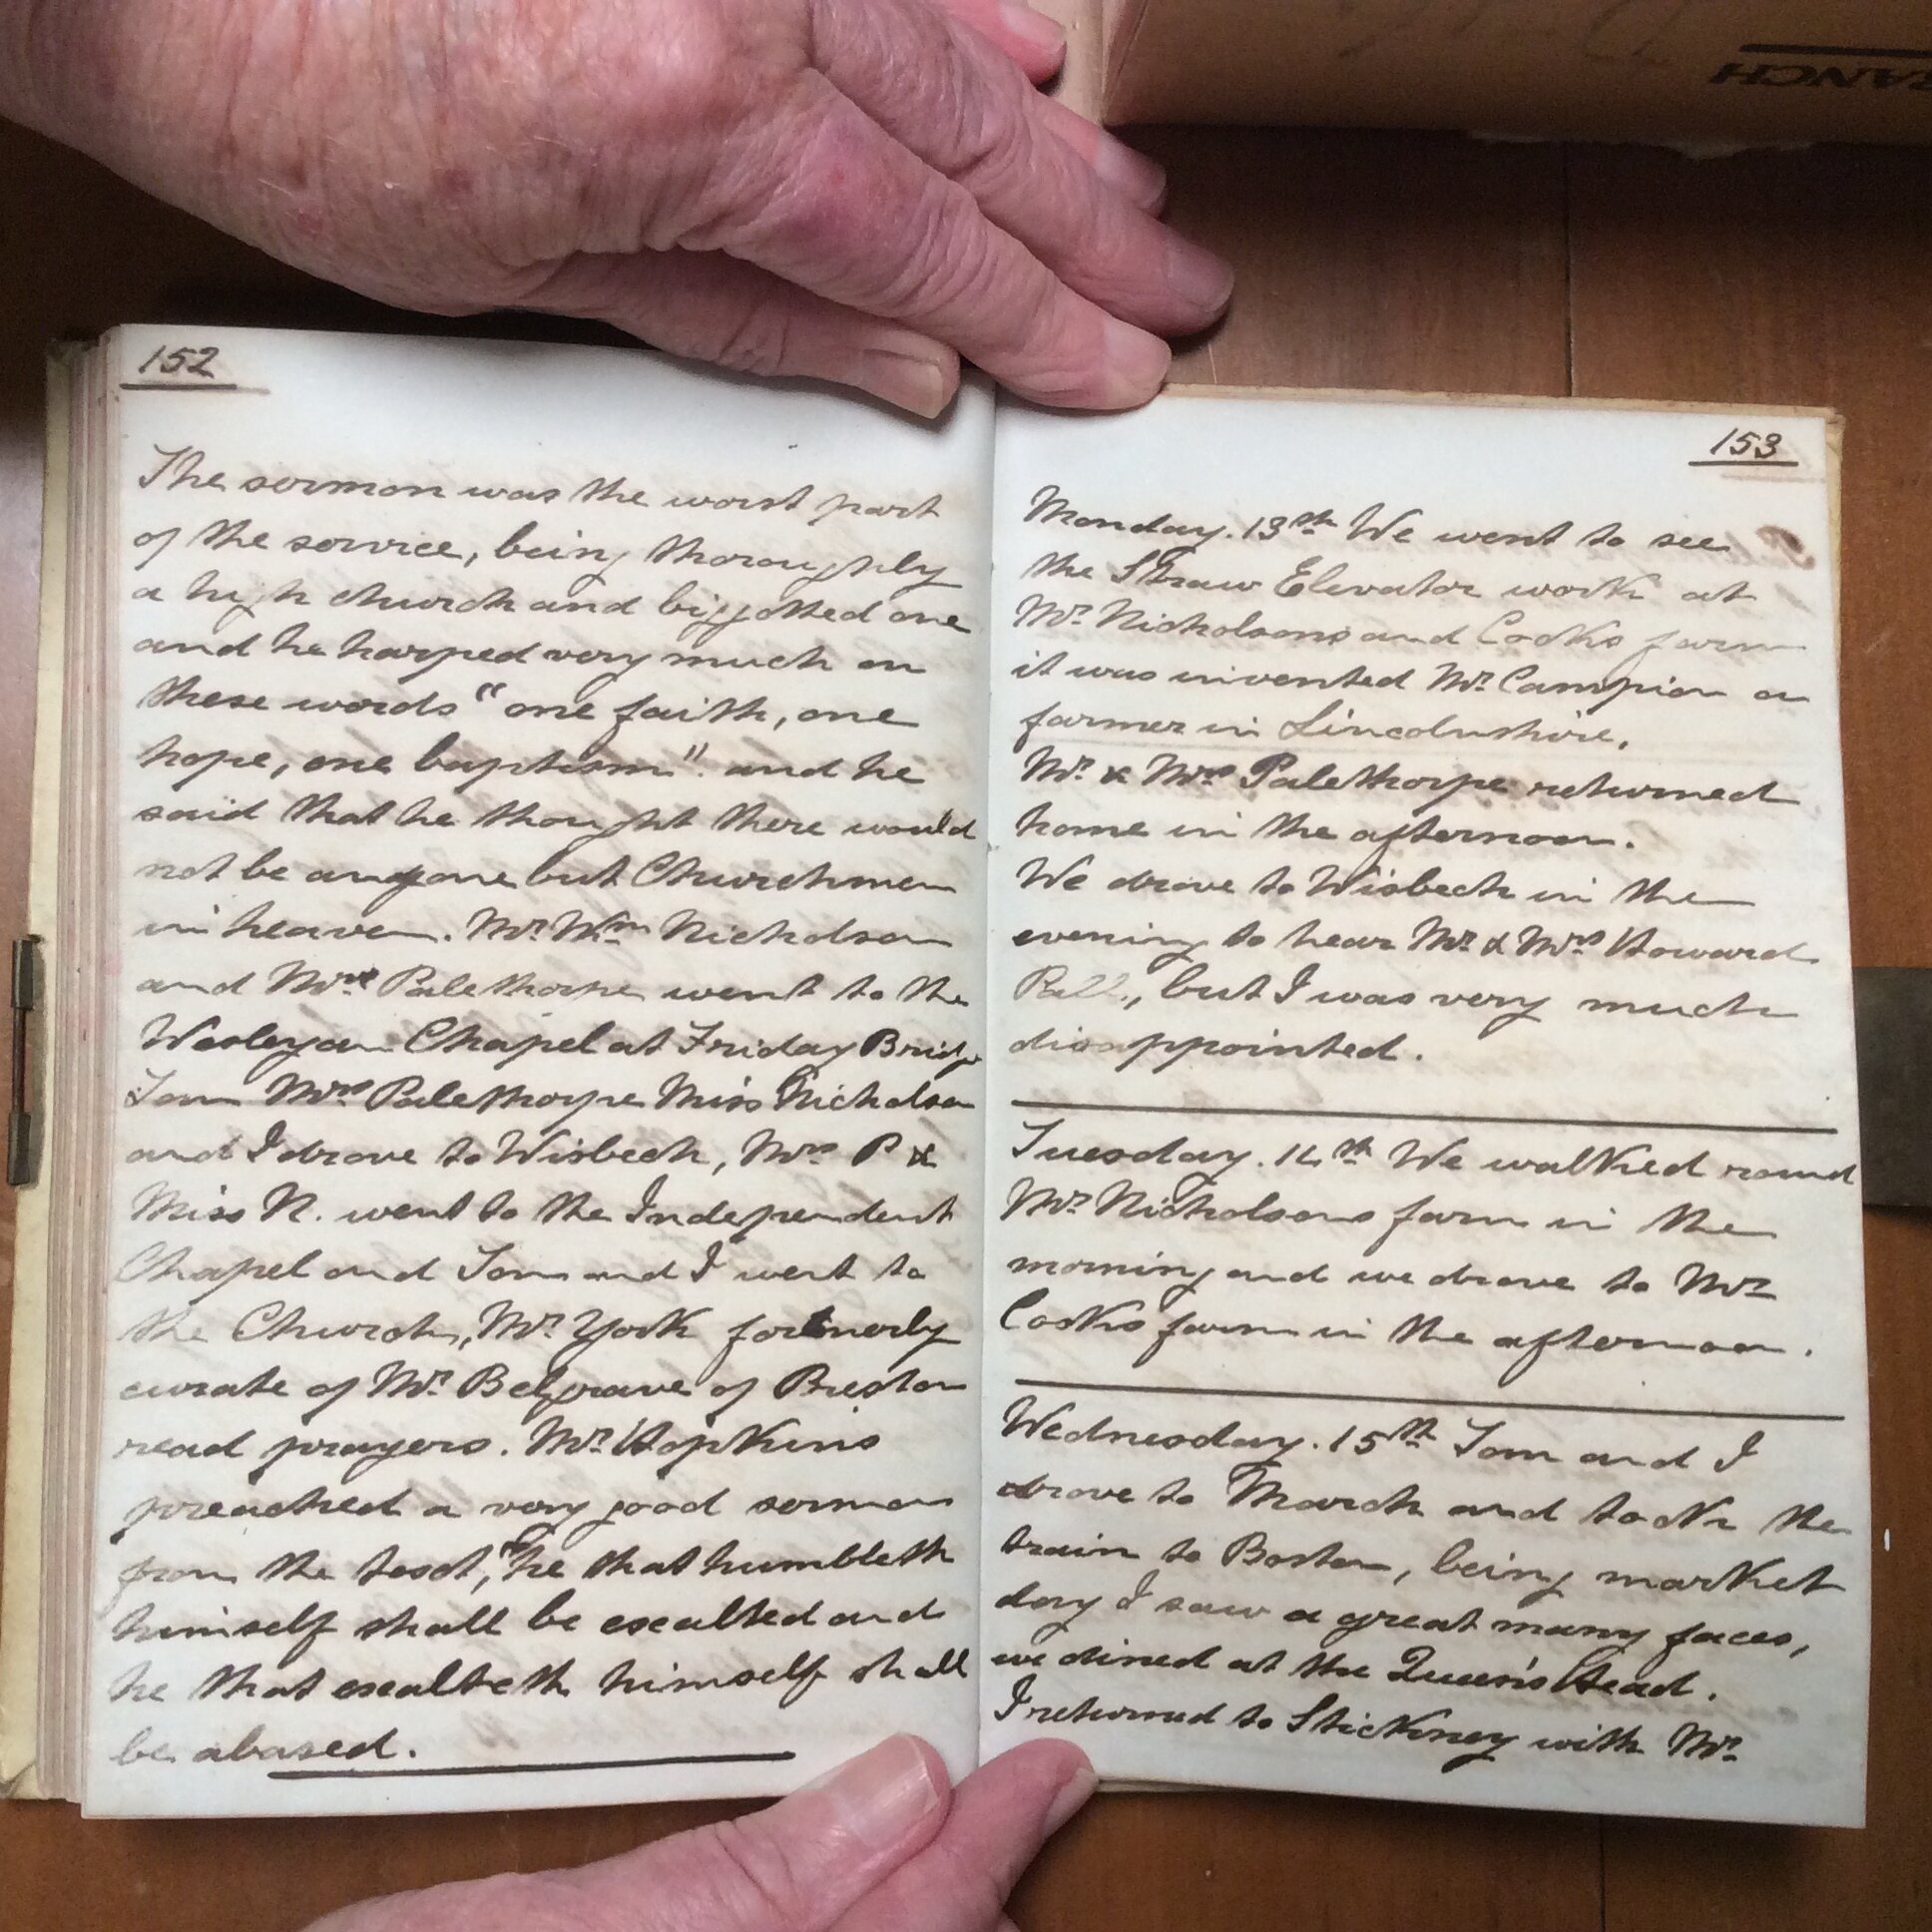 ANCH
152
The sermon was the worst part
of the service, being thoroughly
a high church and biggotted one
and he harped very much on
these words "one faith, one
hope, one baptism". and he
said that he thought there would
not be anyone but Churchmen
in heaven. Mr. Wm. Nicholson
and Mrs. Palethorpe went to the
Wesleyan Chapel at Friday Bridge
Tom Mrs. Palethorpe Miss Nicholson
and I drove to Wisbech, Mrs P &
Miss N. went to the Independent
Chapel and Tom and I went to
the Church, Mr. York formerly
curate of Mr. Belgrave of Preston
read prayers. Mr. Hopkins
preached a very good sermon
from the text, "he that humbleth
himself shall be exalted and
he that exalteth himself shall
be abased.
153
Monday. 13th We went to see
the Straw Elevator work at
Mr. Nicholsons and Cooks farm
it was invented Mr. Campion a
farmer in Lincolnshire.
Mr. & Mrs. Palethorpe returned
home in the afternoon.
We drove to Wisbech in the
evening to hear Mr. & Mrs Howard
Paul, but I was very much
disappointed.
Tuesday. 14th We walked round
Mr. Nicholsons farm in the
morning and we drove to Mr.
Cooks farm in the afternoon.
Wednesday. 15th Tom and I
drove to March and took the
train to Boston, being market
day I saw a great many faces,
we dined at the Queen's Head.
I returned to Stickney with Mr.